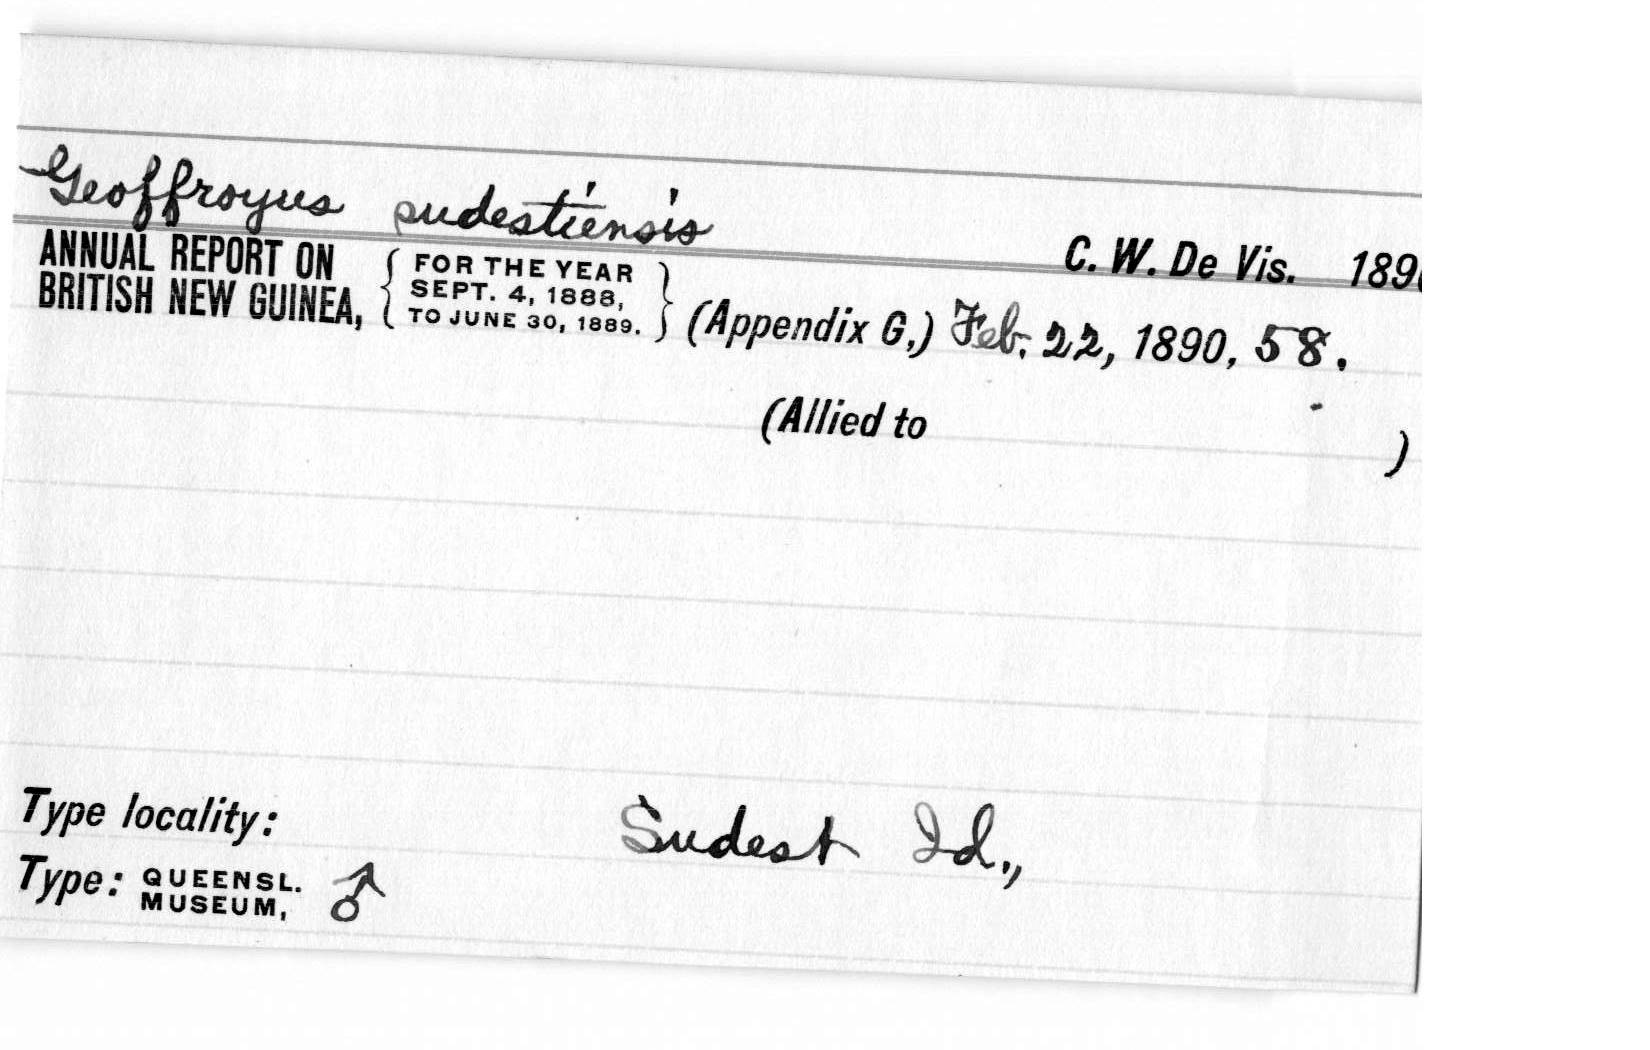 Geoffroyus sudestiensis
C. W. De Vis. 189
ANNUAL REPORT ON BRITISH NEW GUINEA, { FOR THE YEAR SEPT. 4, 1888, TO JUNE 30, 1889. } (Appendix G,) Feb. 22, 1890, 58.
(Allied to )
Type locality: Sudest Id.,
Type: QUEENSL. MUSEUM, ♂